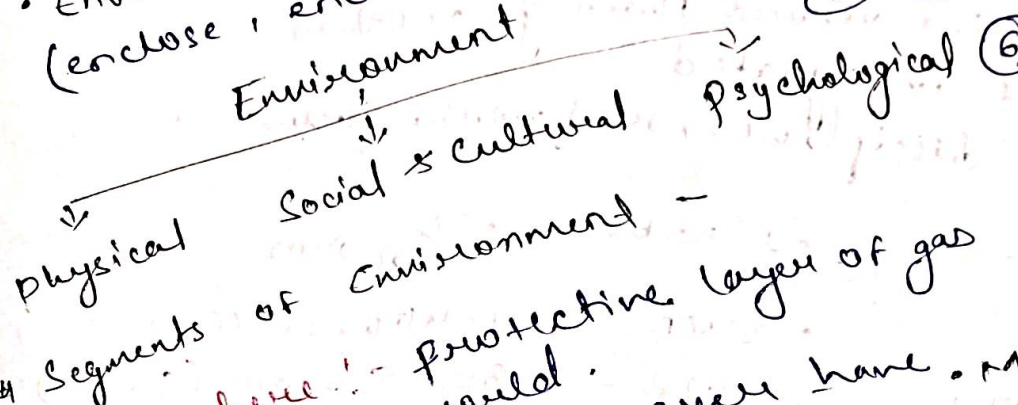 (enclose,
Environment
Physical Social & Cultural Psychological 6
Segments of Environment -
:- Protective layer of gas
have.